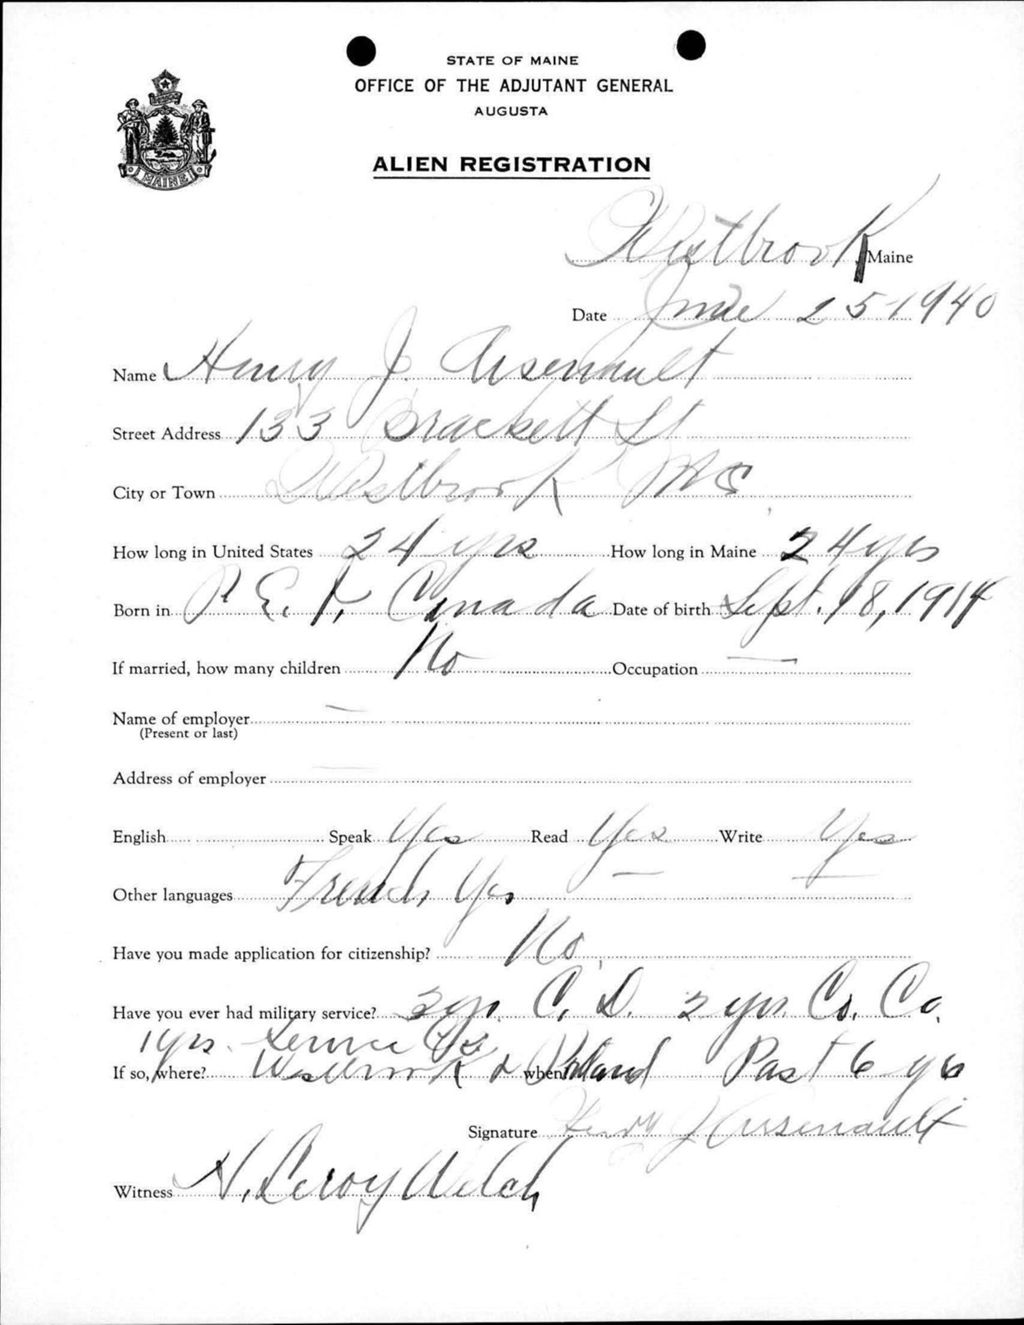 STATE OF MAINE
OFFICE OF THE ADJUTANT GENERAL
AUGUSTA
MAINE
ALIEN REGISTRATION
Westbrook, Maine
Date June 25-1940
Name Henry J. Arsenault
Street Address 133 Brackett St
City or Town Westbrook Me
How long in United States 24 yrs How long in Maine 24 yrs
Born in P. E. I. Canada Date of birth Sept. 18, 1914
If married, how many children No Occupation —
Name of employer —
(Present or last)
Address of employer —
English Speak Yes Read Yes Write Yes
Other languages French Yes — —
Have you made application for citizenship? No
Have you ever had military service? 3 yrs. C. D. 2 yrs. Co. Co.
1 yrs. Service
If so, where? Westbrook & Portland when? Past 6 yrs
Signature Henry J Arsenault
Witness N. Leroy Welch